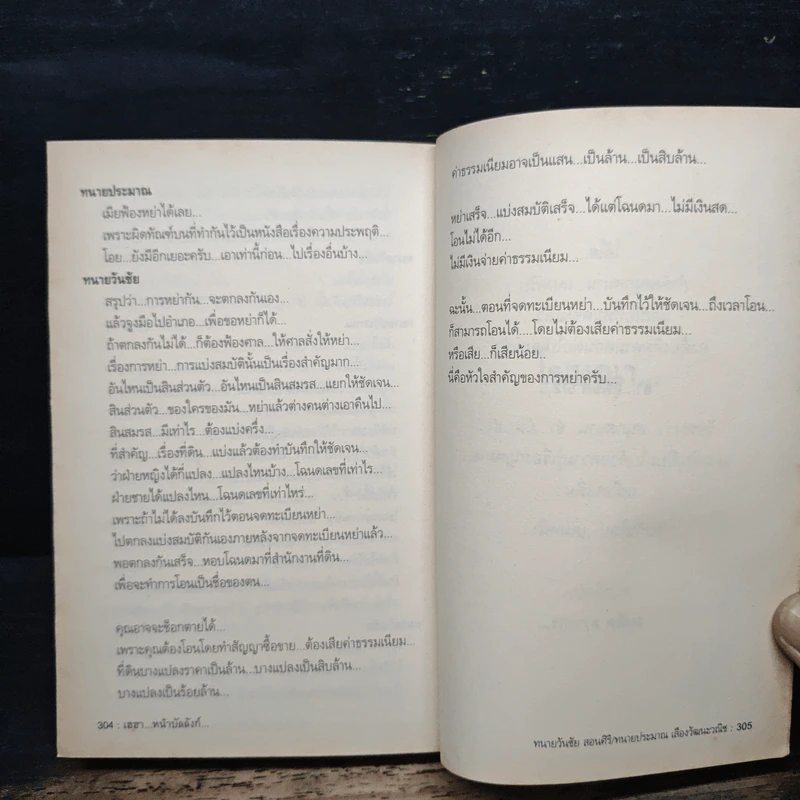 ทนายประมาณ
เมียฟ้องหย่าได้เลย...
เพราะผิดทัณฑ์บนที่ทำกันไว้เป็นหนังสือเรื่องความประพฤติ...
โอย...ยังมีอีกเยอะครับ...เอาเท่านี้ก่อน...ไปเรื่องอื่นบ้าง...
ทนายวันชัย
สรุปว่า...การหย่ากัน...จะตกลงกันเอง...
แล้วจูงมือไปอำเภอ...เพื่อขอหย่าก็ได้...
ถ้าตกลงกันไม่ได้...ก็ต้องฟ้องศาล...ให้ศาลสั่งให้หย่า...
เรื่องการหย่า...การแบ่งสมบัตินั้นเป็นเรื่องสำคัญมาก...
อันไหนเป็นสินส่วนตัว...อันไหนเป็นสินสมรส...แยกให้ชัดเจน...
สินส่วนตัว...ของใครของมัน...หย่าแล้วต่างคนต่างเอาคืนไป...
สินสมรส...มีเท่าไร...ต้องแบ่งครึ่ง...
ที่สำคัญ...เรื่องที่ดิน...แบ่งแล้วต้องทำบันทึกให้ชัดเจน...
ว่าฝ่ายหญิงได้กี่แปลง...แปลงไหนบ้าง...โฉนดเลขที่เท่าไร...
ฝ่ายชายได้แปลงไหน...โฉนดเลขที่เท่าไหร่...
เพราะถ้าไม่ได้ลงบันทึกไว้ตอนจดทะเบียนหย่า...
ไปตกลงแบ่งสมบัติกันเองภายหลังจากจดทะเบียนหย่าแล้ว...
พอตกลงกันเสร็จ...หอบโฉนดมาที่สำนักงานที่ดิน...
เพื่อจะทำการโอนเป็นชื่อของตน...
คุณอาจจะช็อกตายได้...
เพราะคุณต้องโอนโดยทำสัญญาซื้อขาย...ต้องเสียค่าธรรมเนียม...
ที่ดินบางแปลงราคาเป็นล้าน...บางแปลงเป็นสิบล้าน...
บางแปลงเป็นร้อยล้าน...
304 : เฮฮา...หน้าบัลลังก์...
ค่าธรรมเนียมอาจเป็นแสน...เป็นล้าน...เป็นสิบล้าน...
หย่าเสร็จ...แบ่งสมบัติเสร็จ...ได้แต่โฉนดมา...ไม่มีเงินสด...
โอนไม่ได้อีก...
ไม่มีเงินจ่ายค่าธรรมเนียม...
ฉะนั้น...ตอนที่จดทะเบียนหย่า...บันทึกไว้ให้ชัดเจน...ถึงเวลาโอน...
ก็สามารถโอนได้....โดยไม่ต้องเสียค่าธรรมเนียม...
หรือเสีย...ก็เสียน้อย..
นี่คือหัวใจสำคัญของการหย่าครับ...
ทนายวันชัย สอนศิริ/ทนายประมาณ เลืองวัฒนะวณิช : 305